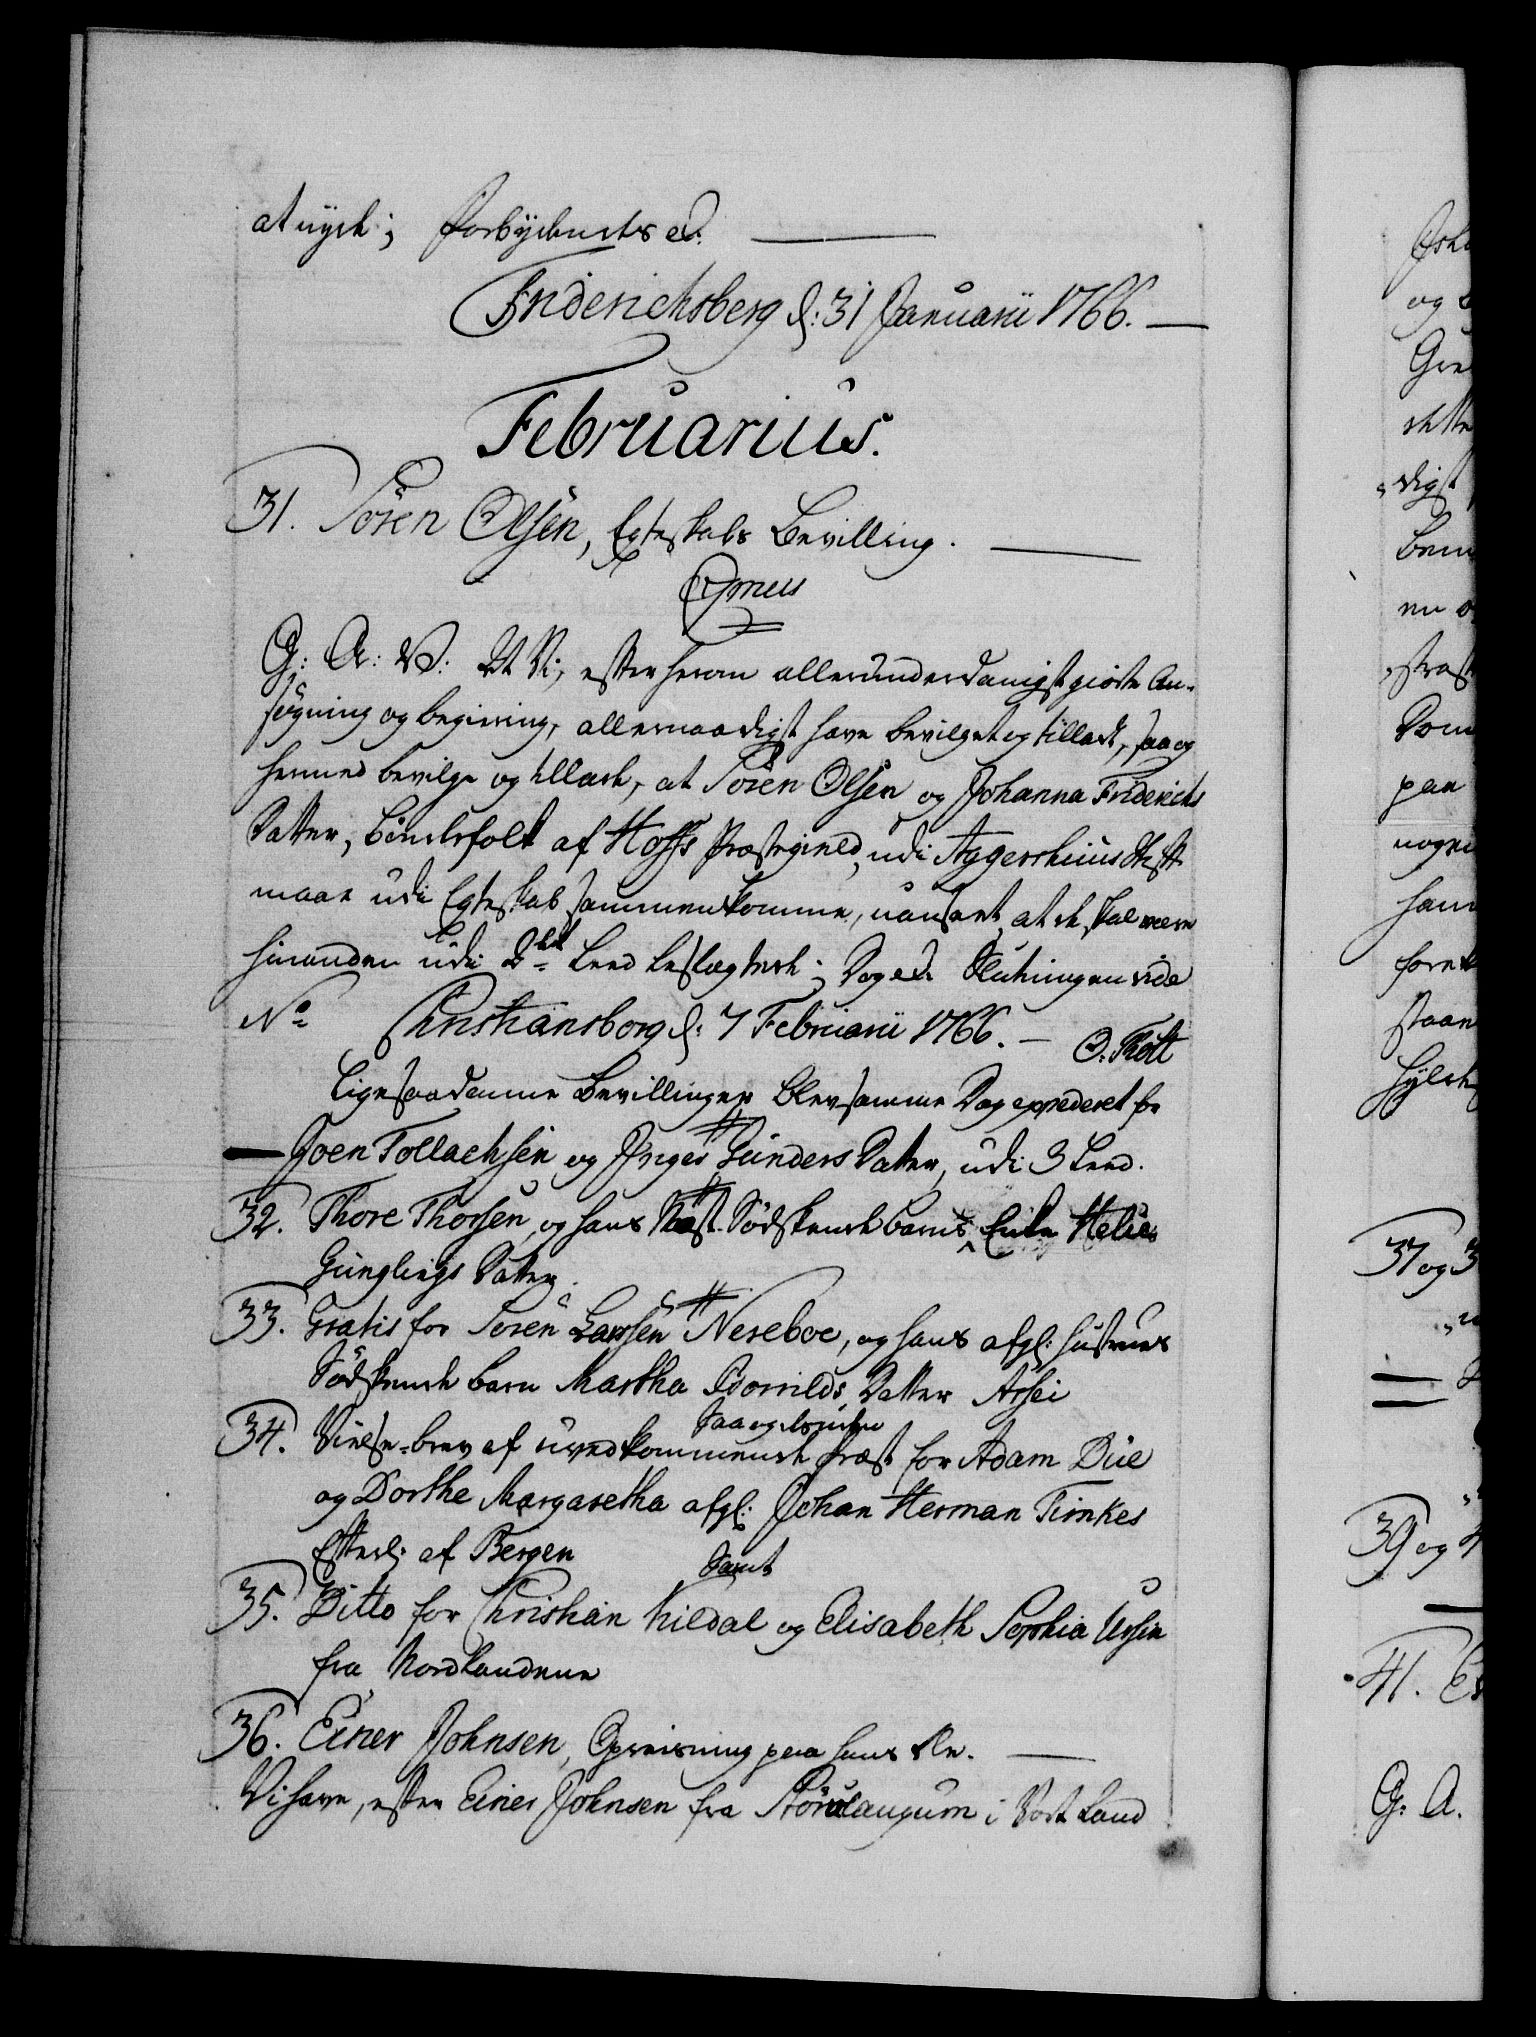 at nyde; Forbydendes etc.
Friderichsberg d: 31 Januarii 1766.
Februarius.
31. Sören Olsen, Egteskabs Bevilling.
G: A: V: At Vi, efter herom allerunderdanigst giorte An-
søgning og begiering, allernaadigst have bevilget og tilladt, saa og
hermed bevilge og tillade, at Sören Olsen og Johanna Friderichs
Datter, Bøndefolk af Hoffs Præstegield, udi Aggershuus Stift
maae udi Egteskab sammenkomme, uanseet, at de skal være
hinanden udi 2det Leed beslægtede; Dog etc. Slutningen vide
No Christiansborg d: 7 Februarii 1766. O. Thott
Ligesaadanne Bevillinger blev samme Dag expederet for
Joen Tollachsen og Inger Gunders Datter, udi 3 Leed.
32. Thore Thorsen, og hans Næst-Södskende barns Enke Helie
Gunglings Datter.
33. Gratis for Sören Larsen Neseboe, og hans afgl: Hustrues
Södskende barn Martha Bornilds Datter Assei
34. Vielse-brev af uvedkommende Præst for Adam Düe
og Dorthe Margaretha afgl: Johan Herman Timkes
Efterl: af Bergen
Samt
35. Ditto for Christian Kildal og Elisabeth Sophia Ursin
fra Nordlandene
36. Einer Johnsen, Opreisning paa hans Ære.
Vi have, efter Einer Johnsen fra Störelaugum i Vort Land
og
37 og 3
39 og 4
41.
G: A.